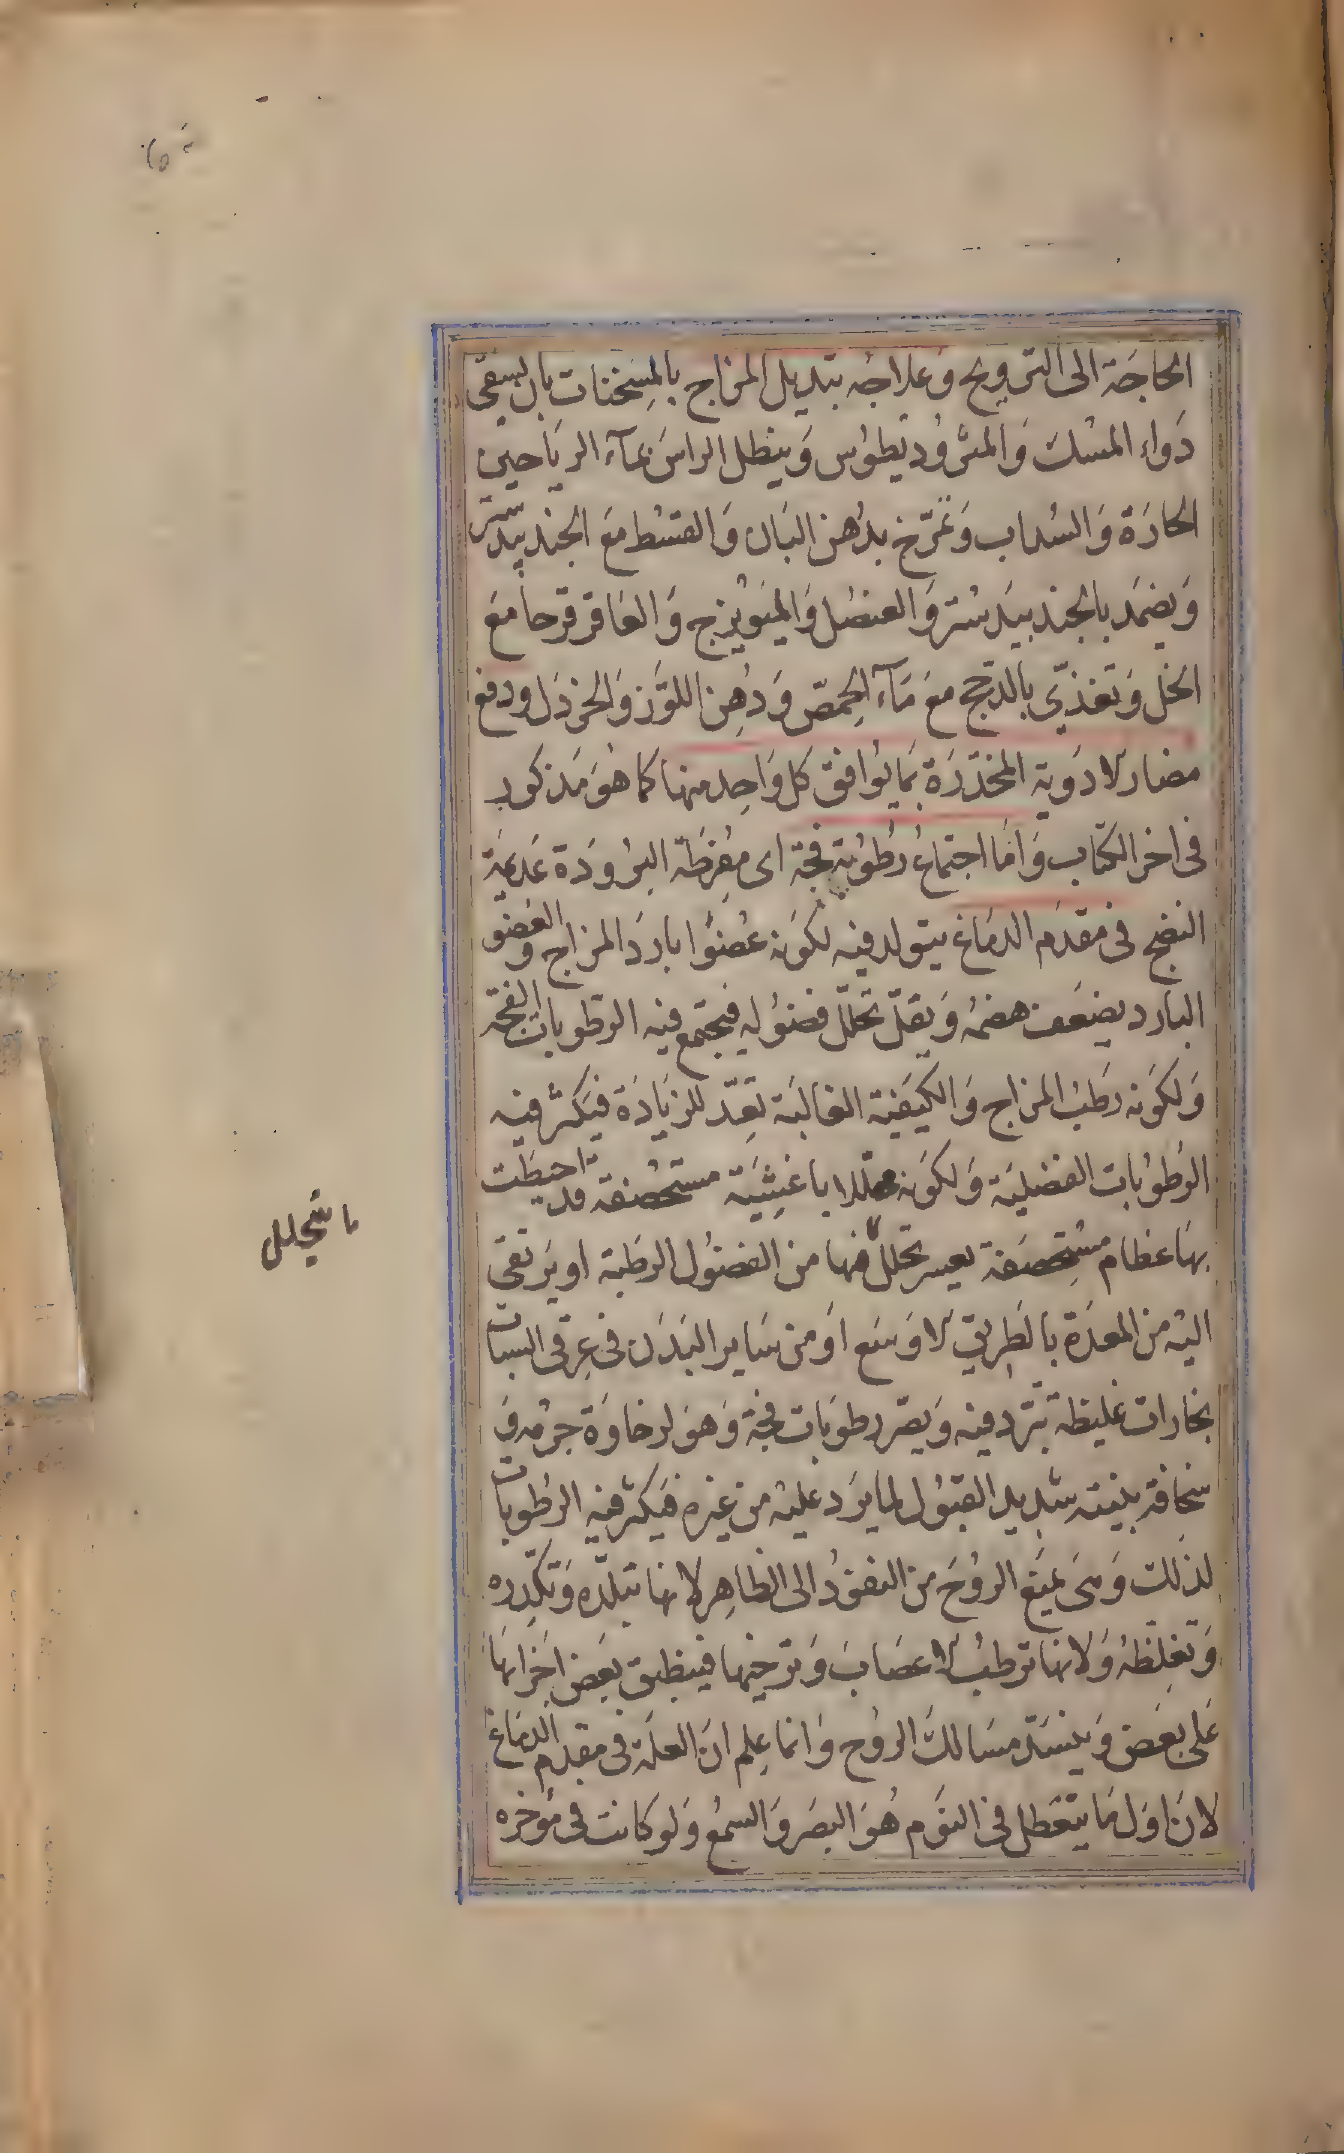 الحاجَة الى الترويح وَعلاجُه بتبديل المزاج بالمسِخنات بان يسقى
دَواء المسْك وَالمثرُوديطوُس وَينطل الراسَ بمآء الريَاحين
الحارَة وَالسُداب وَتمرّخ بدُهن البَان وَالقسْط مَع الجندبيدستر
وَيضمَد بالجندبيدَستر وَالعنصُل وَالميَويزج وَالعَاقر قرحا مَع
الخل وَتغذّي بالدجج مَع مَآء الحِمصّ وَدُهِن اللوَز وَالخردَل ودفع
مضار الادوَية المخدّرَة بمَا يوُافق كل وَاحِد منها كما هُوَ مَذكور
فى اخر الكتاب وَامَا اجتماعُ رطُوبة فجة اى مفِرطَة البرُودَة عَديمَة
النضج فى مقدَم الدمَاغ يتولد فيه لكوَنه عُضوًا باردَ المزاج وَالعضو
البَارد يضعَف هضمُه وَيقلّ تحللّ فضوُله فيجتمع فيه الرطوبات الفجة
وَلكوَنه رَطبُ المزاج وَالكيَفية الغالبَة تعِدّ للزيَادَة فيَكثُر فيه
الرطوُبات الفضليَة وَلكوَنه مجللا باغشِيَة مستحصفة قد احيطَت
بهَا عظام مسُتحصفَة يعسر تحلل ما يتحلل منها من الفضوُل الرطبة او يرَتقى
اليْه من المعدَة بالطرِيق الاوسَع اوَ من سَاير البَدَن فى عِرقى السبات
بخارات غليظة تبَرد فيه وَيصيّر رطوبَات فجة وَهوَ لرخاوَة جرمه وَ
سخافة بنيته شديد القبوُل لما يرَد عليْه من غيره فيَكثر فيه الرطوبات
لذلك وَهىَ تمنَع الروُحَ من النفوذُ الى الظاهِر لانها تبلّده وَتكِدّره
وَتغلِظهُ وَلانها ترطبُ الاعصَابَ وَترخيها فينطبق بعَض اجَزائها
عَلى بعَض وَينسَدّ مسَالكَ الروُح وَانما عِلم انَ العلَة فى مقدم الدمَاغ
لانَ اوَل مَا يتعَطل فى النوَم هُوَ البصَر وَالسمْع وَلو كانت فى موُخره
ما يتحلل